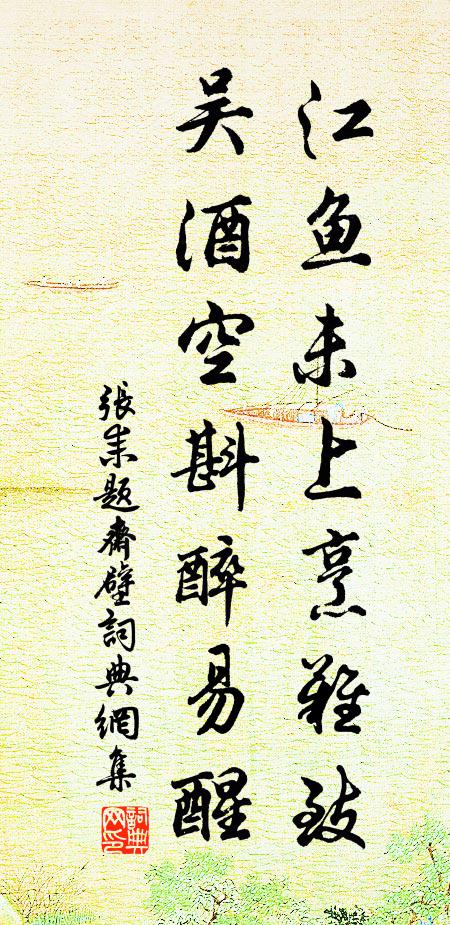 江鱼未上烹難致
吴酒空斟醉易醒
張耒題齋壁詞典網集
詞典网印